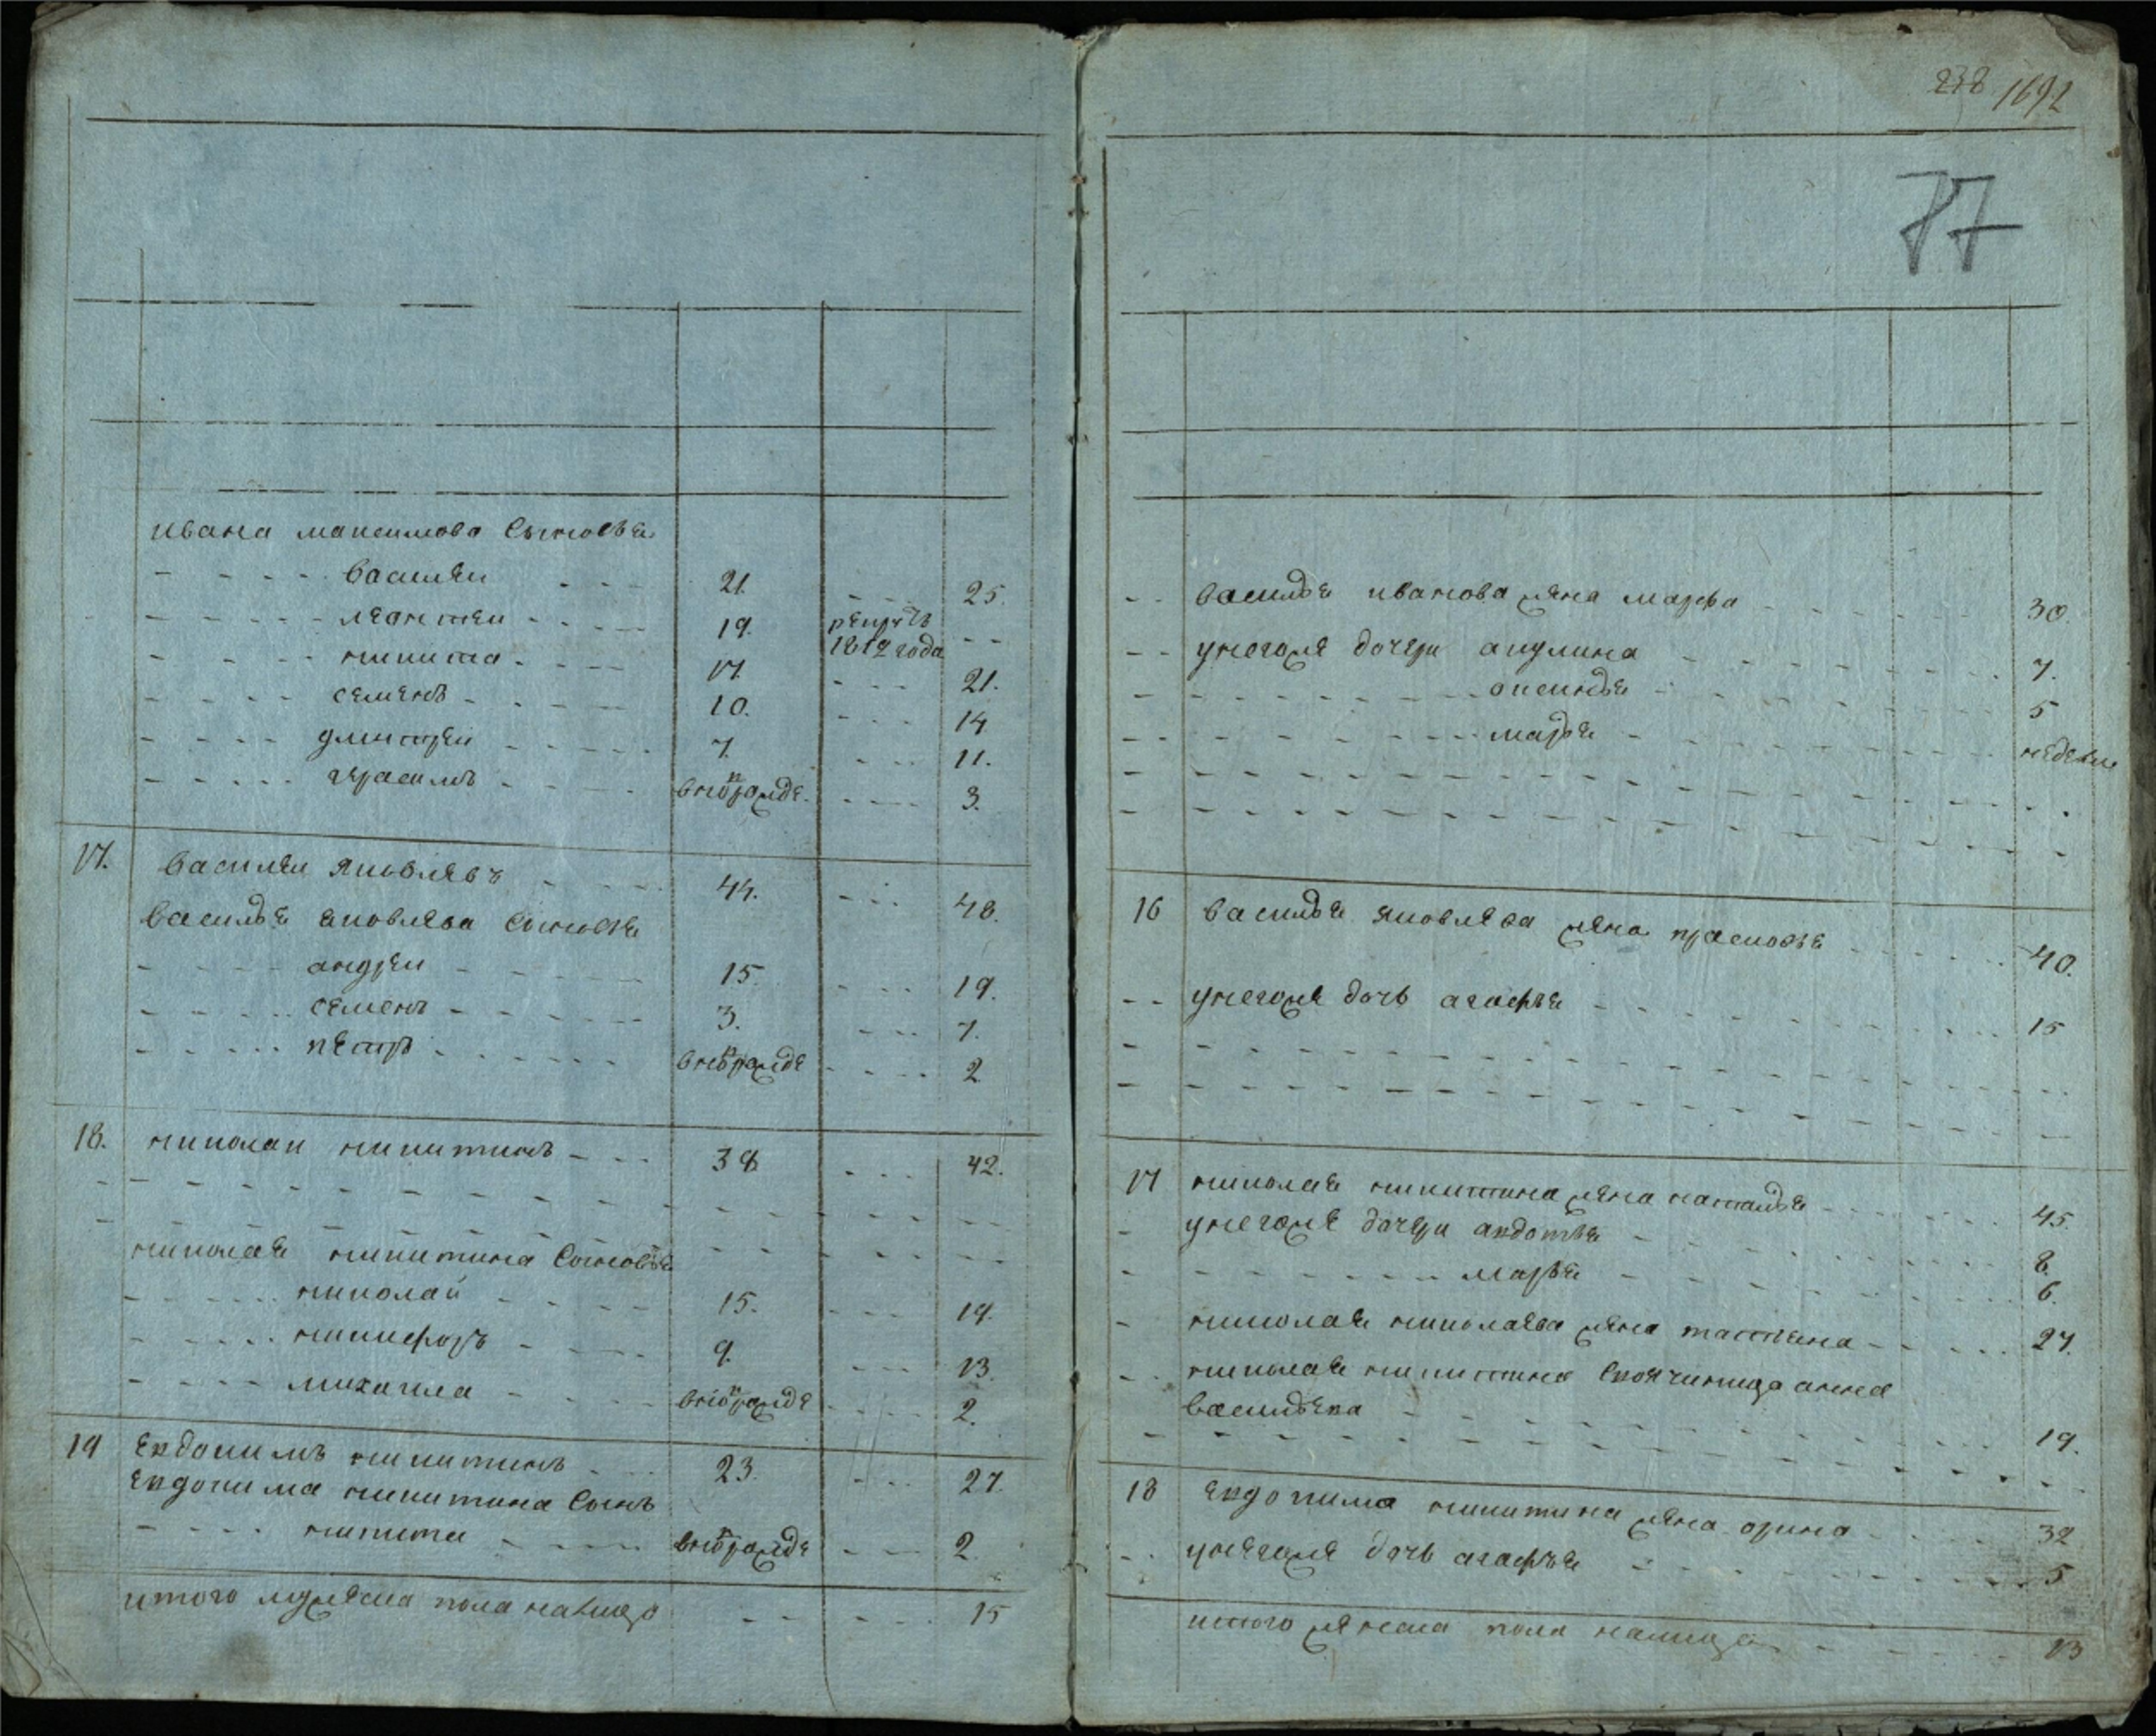 ивана максимова сыновья
василеи 21. 25.
леонтеи 19. рекрутъ 1812 года
никита 17. 21.
семенъ 10. 14
дмитреи 7. 11.
герасимъ 3.
17. василеи яковлевъ 44. 48.
василья яковлева сыновья
андреи 15. 19.
семенъ 3. 7.
петръ 2
18. николаи никитинъ 38 42.
николая никитина сыновья
николай 15. 19.
никифоръ 9. 13.
михаила 2.
19 евдокимъ никитинъ 23. 27.
евдокима никитина сынъ
никита 2
итого мужеска пола налицо 15
238 1692
77
василья иванова жена марфа 30.
унегоже дочери акулина 7.
аксинья 5
марья недели
16 василья яковлева жена прасковья 40.
унегоже дочь агафья 15
17 николая никитина жена наталья 45.
унегоже дочери авдотья 8.
марья 6.
николая николаева жена татьяна 27.
николая никитина анна
васильева 19.
18 евдокима никитина жена орина 32
унегоже дочь агафья 5
итого женска пола налицо 13